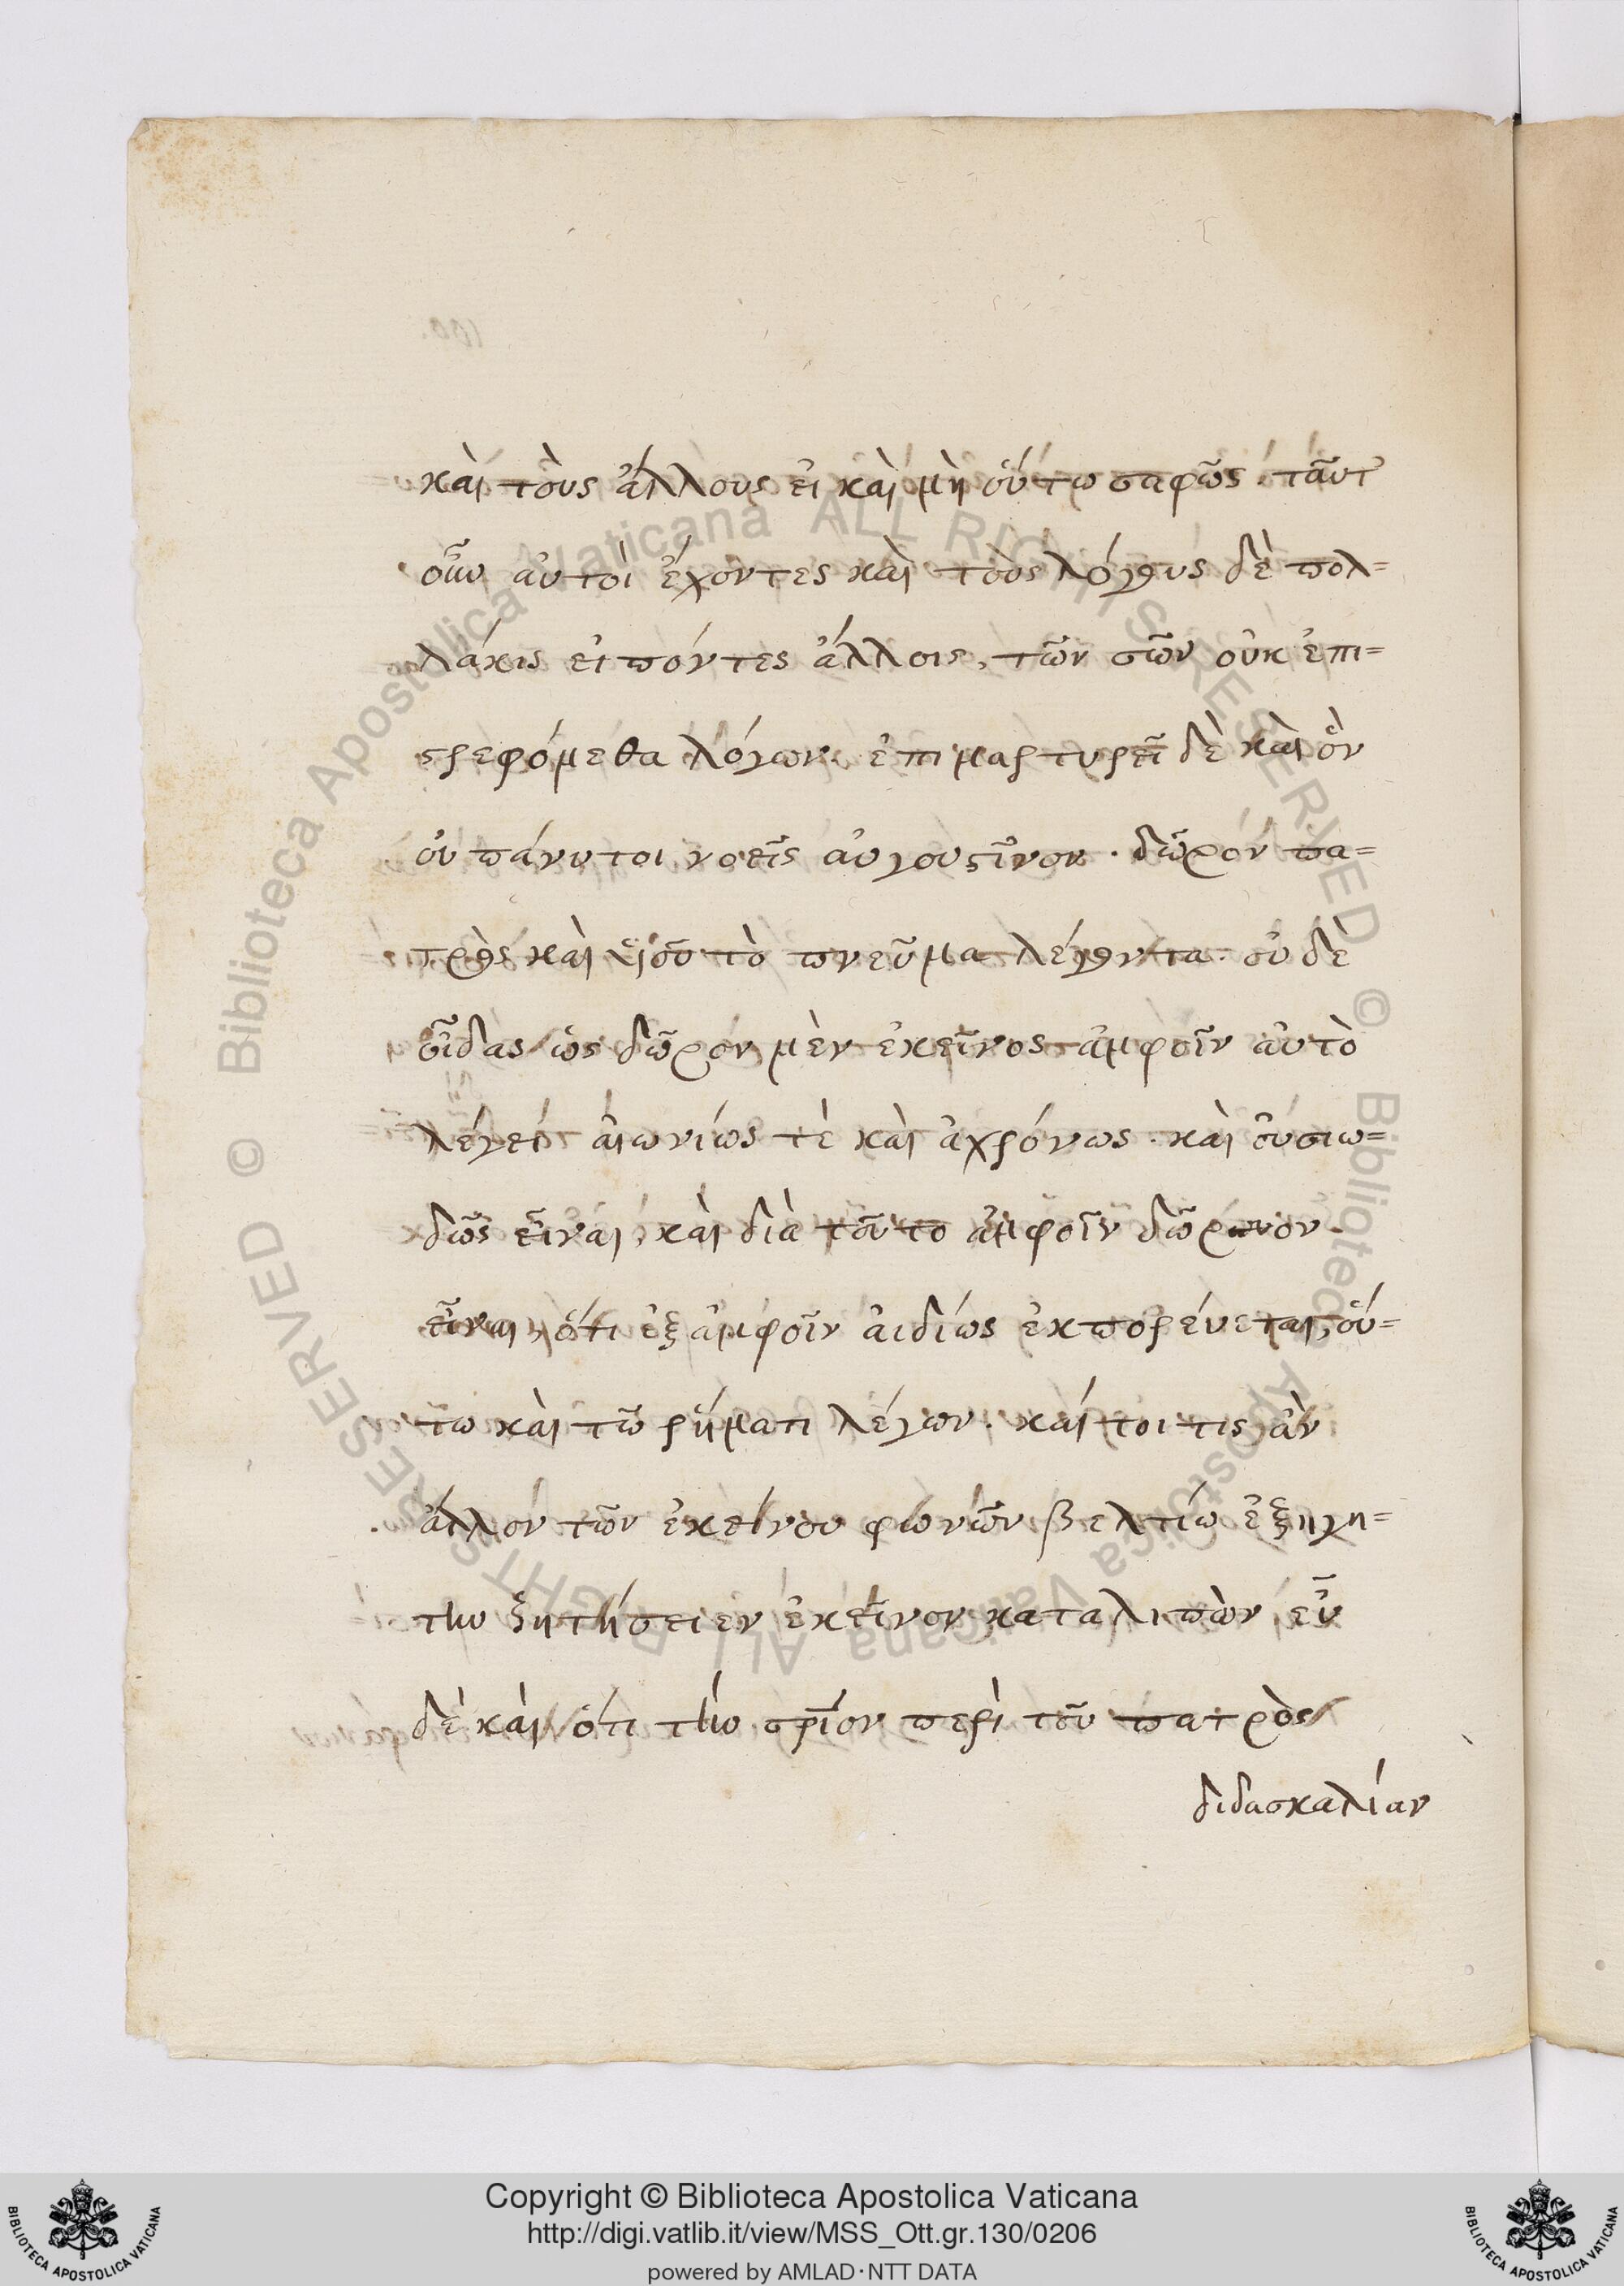 καὶ τοὺς ἄλλους εἰ καὶ μὴ οὕτω σαφῶς. ταῦτ
οὖν αὐτοὶ ἔχοντες καὶ τοὺς λόγους δὲ πολ=
λάκις εἰπόντες ἄλλοις, τῶν σῶν οὐκ ἐπι=
στρεφόμεθα λόγων. ἐπιμαρτυρεῖ δὲ καὶ ὃν
οὐ πάνυ τοι νοεῖς αὐγουστῖνον. δῶρόν πα=
τρὸς καὶ υἱοῦ τὸ πνεῦμα λέγοντα. οὐ δὲ
οἶδας ὡς δῶρον μὲν ἐκεῖνος ἀμφοῖν αὐτὸ
λέγει αἰωνίως τὲ καὶ ἀχρόνως. καὶ οὐσιω=
δῶς εἶναι, καὶ διὰ τοῦτο ἀμφοῖν δῶρον
εἶναι, ὅτι ἐξ ἀμφοῖν ἀιδίως ἐκπορεύεται, οὕ=
τω καὶ τῶ ῥήματι λέγων. καίτοι τις ἂν
ἄλλον τῶν ἐκείνου φωνῶν βελτίω ἐξηγη=
τὴν ζητήσειεν ἐκεῖνον καταλιπὼν, εὖ
δὲ καὶ ὅτι τὴν περὶ τοῦ πατρὸς
διδασκαλίαν
Copyright © Biblioteca Apostolica Vaticana
http://digi.vatlib.it/view/MSS_Ott.gr.130/0206
powered by AMLAD·NTT DATA
BIBLIOTECA APOSTOLICA VATICANA
BIBLIOTECA APOSTOLICA VATICANA
© Biblioteca Apostolica Vaticana ALL RIGHTS RESERVED
© Biblioteca Apostolica Vaticana ALL RIGHTS RESERVED